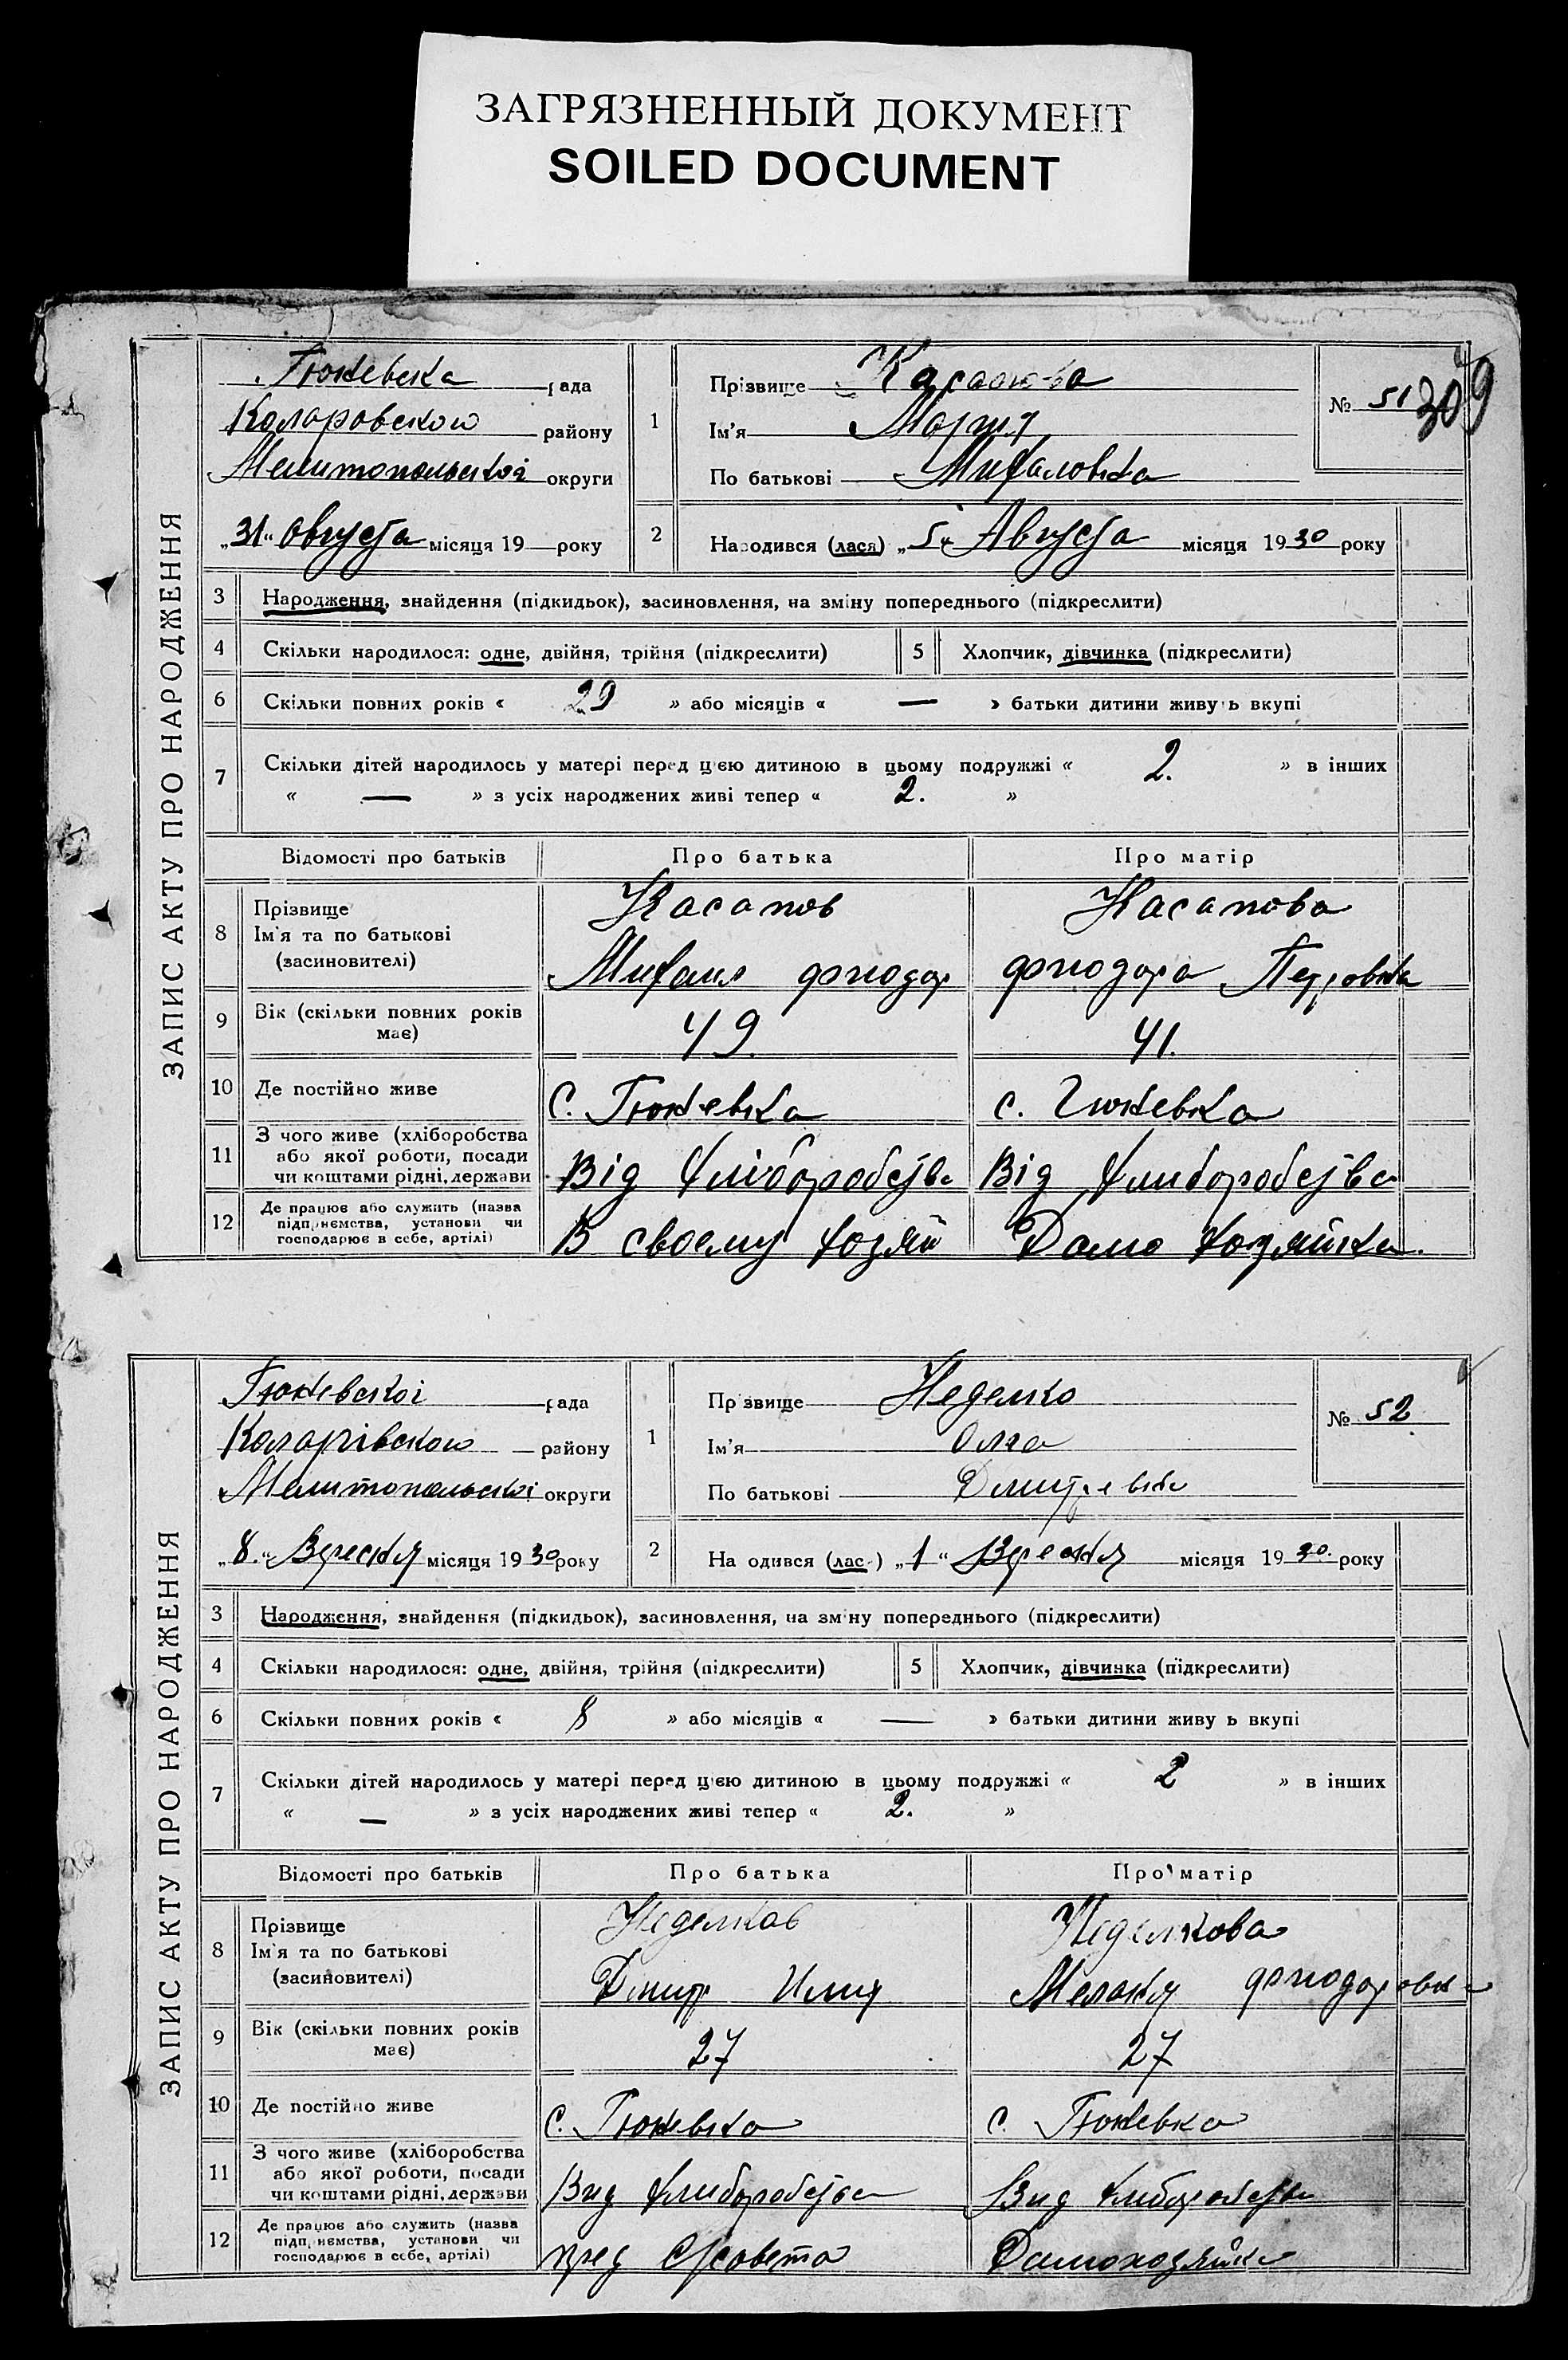 ЗАГРЯЗНЕННЫЙ ДОКУМЕНТ
SOILED DOCUMENT
ЗАПИС АКТУ ПРО НАРОДЖЕННЯ
Гюневска рада
Коларовского району
Мелитопольскоі округи
„31“ Августа місяця 19 — року
1 Прізвище
Ім'я Мария
По батькові Михаловна
№ 51
309
2 Народився (лася) „5“ Августа місяця 1930 року
3 Народження, знайдення (підкидьок), засиновлення, на зміну попереднього (підкреслити)
4 Скільки народилося: одне, двійня, трійня (підкреслити) 5 Хлопчик, дівчинка (підкреслити)
6 Скільки повних років « 29 » або місяців « — » батьки дитини живуть вкупі
7 Скільки дітей народилось у матері перед цією дитиною в цьому подружжі « 2. » в інших
« — » з усіх народжених живі тепер « 2. »
Відомості про батьків Про батька Про матір
8 Прізвище
Ім'я та по батькові
(засиновителі)
Касапов
Михаил фиодор
Касапова
фиодора Петровна
9 Вік (скільки повних років має) 49. 41.
10 Де постійно живе с. Гюневка с. Гюневка
11 З чого живе (хліборобства
або якої роботи, посади
чи коштами рідні, держави
Від хліборобства Від хлиборобства
12 Де працює або служить (назва
підприємства, установи чи
господарює в себе, артілі)
В своему хозяй Домо хозяйка.
ЗАПИС АКТУ ПРО НАРОДЖЕННЯ
Гюневскоі рада
Коларівского району
Мелитопольскоі округи
„8.“ Вресня місяця 1930 року
1 Прізвище Неделко
Ім'я Олга
По батькові Дмитревна
№ 52
2 На одився (лас ) „1“ Вресня місяця 1930. року
3 Народження, знайдення (підкидьок), засиновлення, на зміну попереднього (підкреслити)
4 Скільки народилося: одне, двійня, трійня (підкреслити) 5 Хлопчик, дівчинка (підкреслити)
6 Скільки повних років « 8 » або місяців « — » батьки дитини живу ь вкупі
7 Скільки дітей народилось у матері перед цією дитиною в цьому подружжі « 2 » в інших
« — » з усіх народжених живі тепер « 2. »
Відомості про батьків Про батька Про матір
8 Прізвище
Ім'я та по батькові
(засиновителі)
Неделков
Дмитр Илия
Неделкова
Меланя фиодоровн
9 Вік (скільки повних років має) 27 27
10 Де постійно живе с. Гюневка с. Гюневка
11 З чого живе (хліборобства
або якої роботи, посади
чи коштами рідні, держави
Вид хлиборобства Вид хлиборобства
12 Де працює або служить (назва
підприємства, установи чи
господарює в себе, артілі)
пред с/совета Домохозяйка